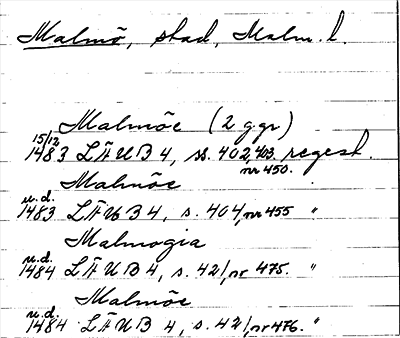 Malmö, stad, Malm. l.
Malmöe (2 ggr)
15/12
1483 LÄUB 4, ss. 402, 403. regest.
nr 450.
Malmöe
u.d.
1483 LÄUB 4, s. 404, nr 455 "
Malmogia
u.d.
1484 LÄUB 4, s. 421, nr 475. "
Malmöe
u.d.
1484 LÄUB 4, s. 421, nr 476. "